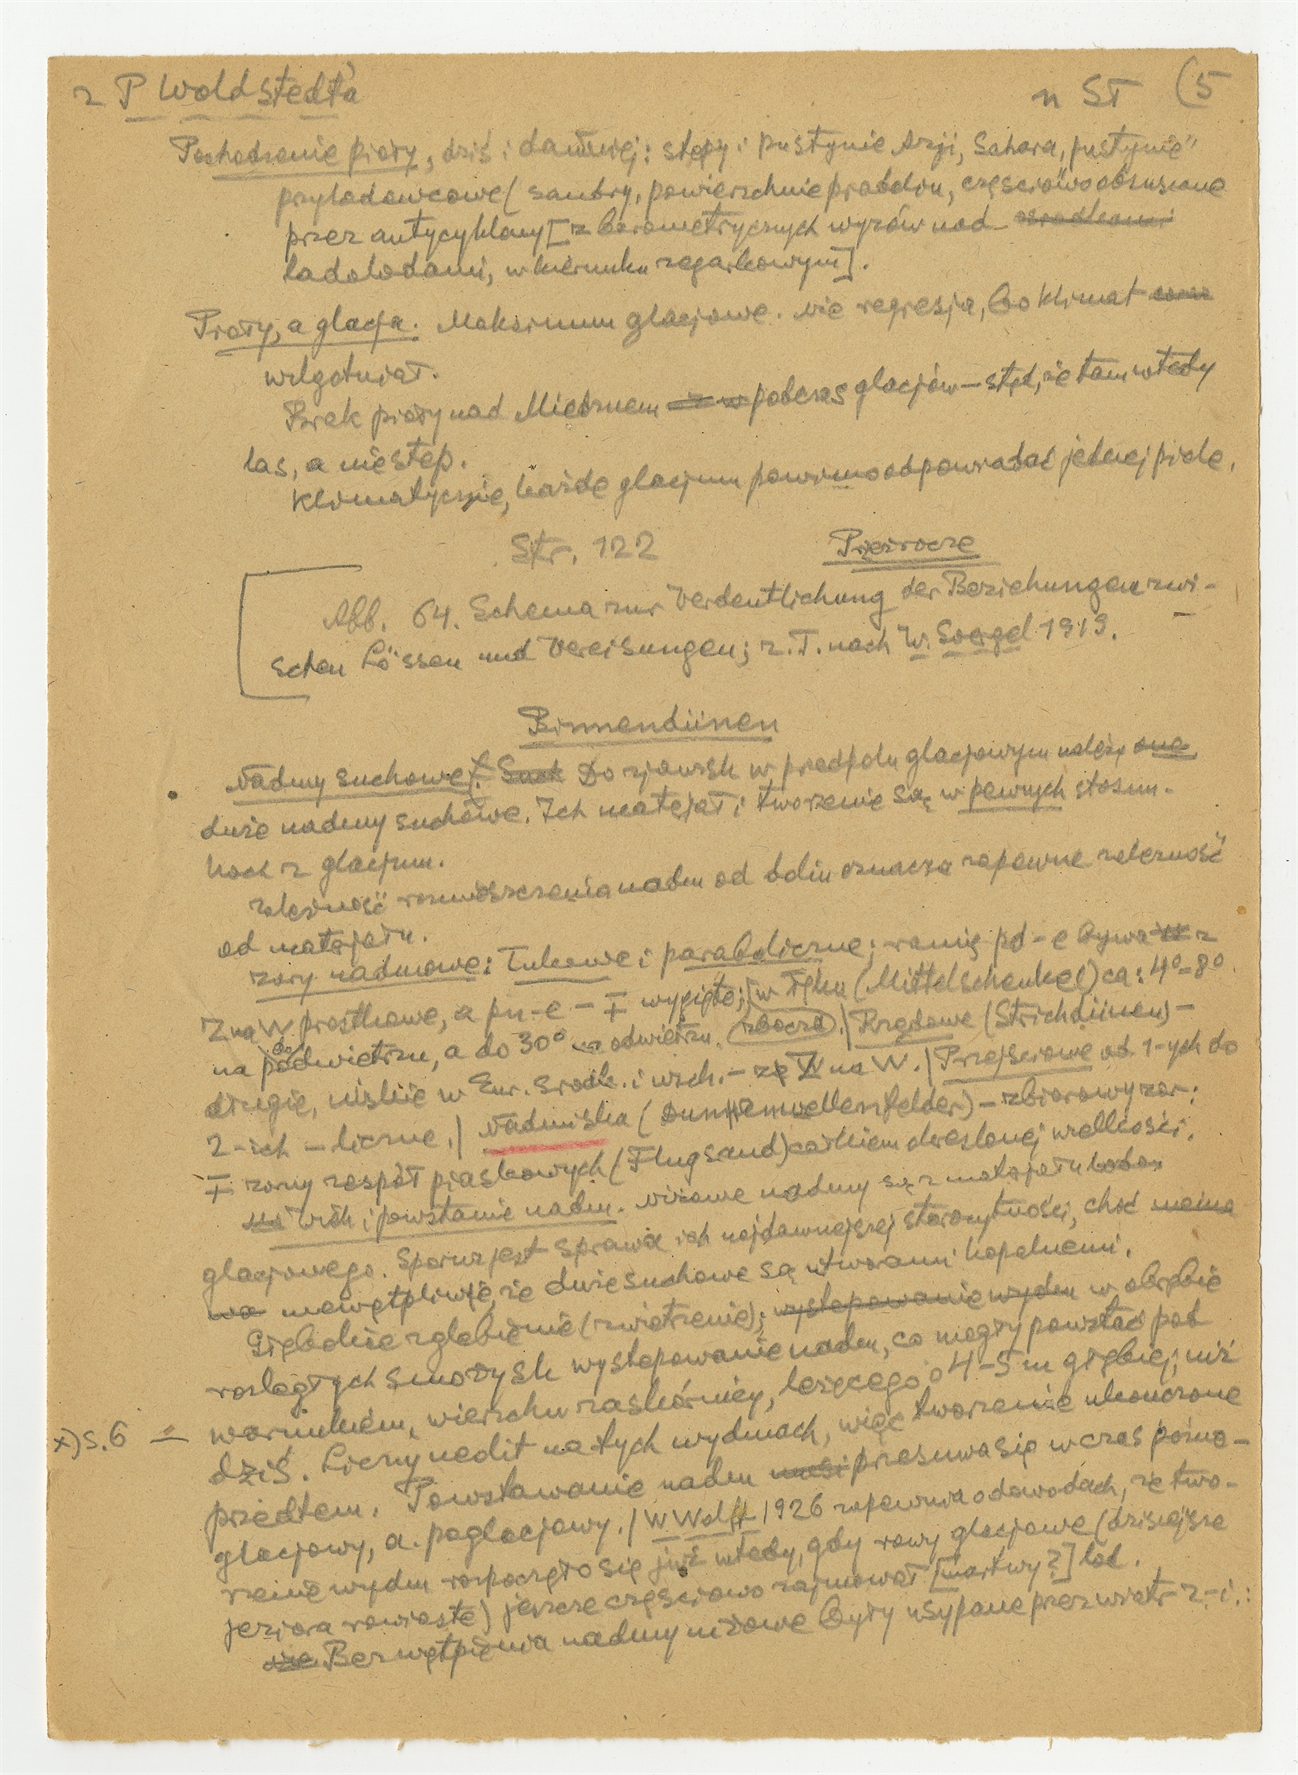 z P Woldstedta
n ST (5
Pochodzenie pioły, dziś i dawniej: stepy i pustynie Azji, Sahara, „pustynie"
przylodowcowe (sandry, powierzchnie pradolin, częściowo osuszone
przez antycyklony [z barometrycznych wyżów nad ośrodkami
lądolodami, w kierunku zegarkowym].
Pioły, a glacja. Maksimum glacjowe. nie regresja, bo klimat
wilgotniał.
Brak pioły nad Miedznem podczas glacjów – stąd, że tam wtedy
las, a nie step.
Klimatycznie, każde glacjum powinno odpowiadać jednej piole.
Str. 122 Przezrocze
Abb. 64. Schema zur Verdeutlichung der Beziehungen zwi-
schen Lössen und Vereisungen; z. T. nach W. Soergel 1919.
Binnendünen
Nadmy suchowe. Do zjawisk w przedpolu glacjowym należą one
duże nadmy suchowe. Ich matejał i tworzenie są w pewnych stosun-
kach z glacjum.
Zależność rozmieszczenia nadm od dolin oznacza zapewne zależność
od matejału.
Zary nadmowe: Łukowe i paraboliczne; ramię pd-e bywa z
Z na W prostkowe, a pn-e – ∓ wygięte; [w łęku (Mittelschenkel) ca: 4°–8°
na podwietrzu, a do 30° na odwietrzu. zbocza. | Rzędowe (Strichdünen) –
długie, niskie w Eur. Środk. i wsch. – ze Z na W. | Przejściowe od 1-ych do
2-ich – liczne. | Nadmiska (Dünenwellenfelder) – zbiorowy zar:
∓ zarny zespół piaskowych (Flugsand) całkiem określonej wielkości.
Wiek i powstanie nadm. Niżowe nadmy są z matejału lodo
glacjowego. Sporna jest sprawa ich najdawniejszej starożytności, choć można
niewątpliwie, że duże suchowe są utworami kopalnemi.
Głębokie zglebienie (zwietrzenie); występowanie wydm w obrębie
rozległych smorysk występowanie nadm, co mogły powstać pod
warunkiem, wierzchu zaskórnicy, leżącego o 4–5 m głębiej, niż
x) S. 6 = dziś. Liczny nedit na tych wydmach, więc tworzenie ukończone
przedtem. Powstawanie nadm przesuwa się w czas późno-
glacjowy, a. poglacjowy. | W Wolff 1926 zapewnia o dowodach, że two-
rzenie wydm rozpoczęło się już wtedy, gdy rowy glacjowe (dzisiejsze
jeziora rowiaste) jeszcze częściowo zajmował [martwy?] lód.
Bez wątpienia nadmy niżowe były usypane przez wiatr z-i.: